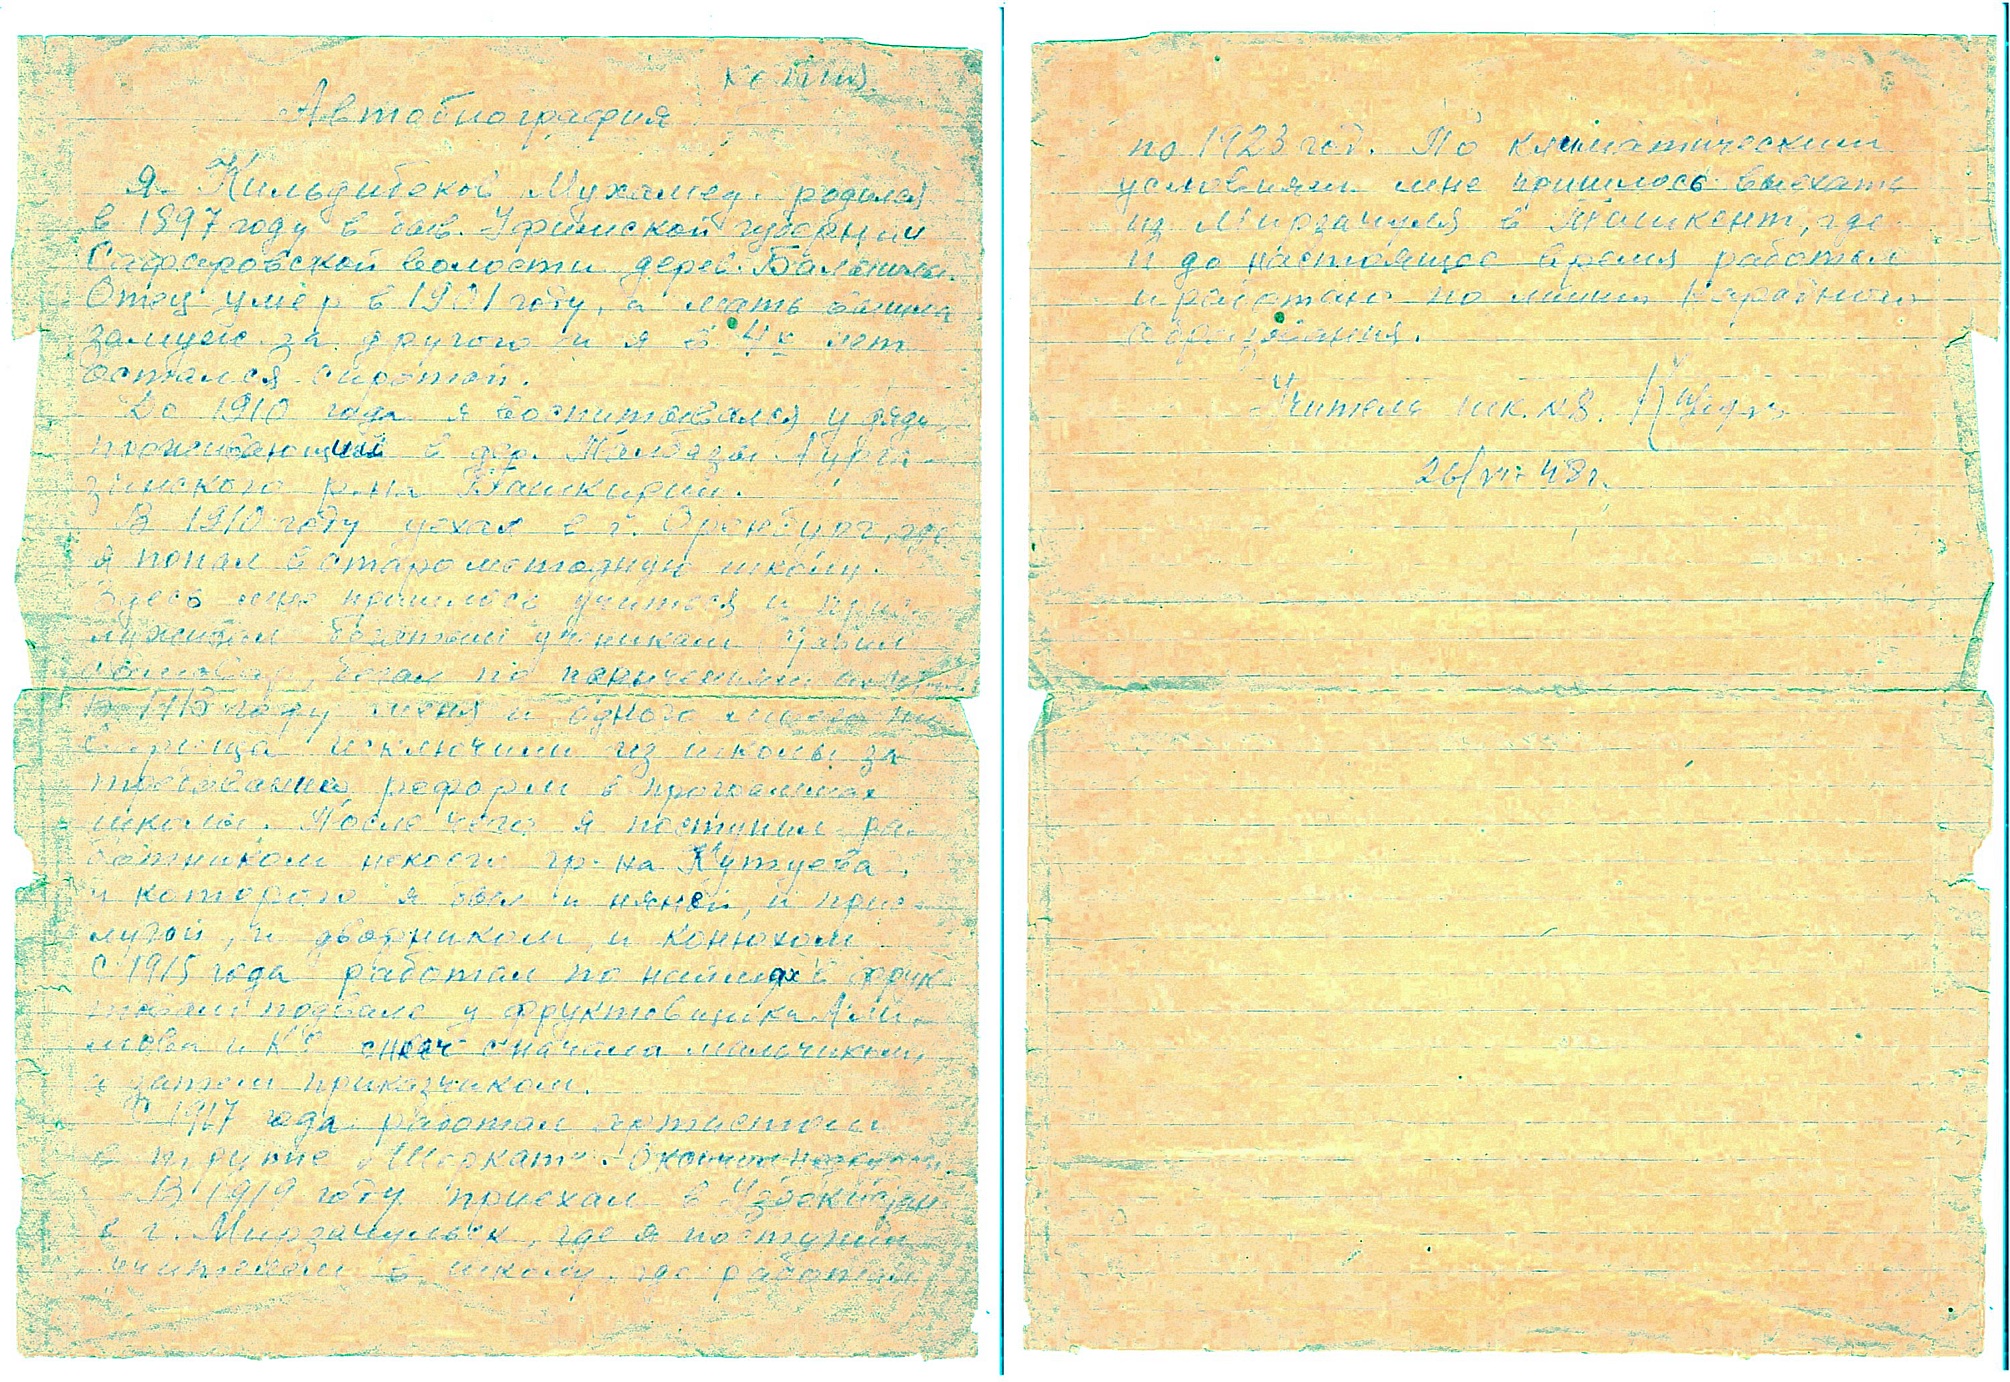 Копия
Автобиография
Я Кильдибеков Мухамед родился
в 1897 году в быв. Уфимской губернии
волости дерев.
Отец умер в 1901 году, а мать вышла
замуж за другого и я в 4х лет
остался сиротой.
До 1910 года я воспитывался у дяди,
проживающий в дер. Аурга-
зинского р-на Башкирии.
В 1910 году уехал в г. Оренбург, где
я попал в старометодную школу.
Здесь мне пришлось учиться и при-
богатым ученикам, ставил
самовар, бегал по поручениям
В 1913 году меня и одного моего то-
варища исключили из школы за
требование реформ в программах
школы. После чего я поступил ра-
ботником некоего гр-на Кутуева,
у которого я был и няней, и прис-
лугой, и дворником, и конюхом
С 1915 года работал по найму в фрук-
товом подвале у фруктовщика Али-
мова и Кº сначала мальчиком,
а затем приказчиком.
С 1917 года работал артистом
в труппе „Ширкат“.
В 1919 году приехал в Узбекистан
в г. Мирзачульск, где я поступил
учителем в школу, где работал
по 1923 год. По климатическим
условиям мне пришлось выехать
из Мирзачуля в Ташкент, где
и до настоящее время работал
и работаю по линии Народного
образования.
Учитель шк. №8.
26/VII 48 г.